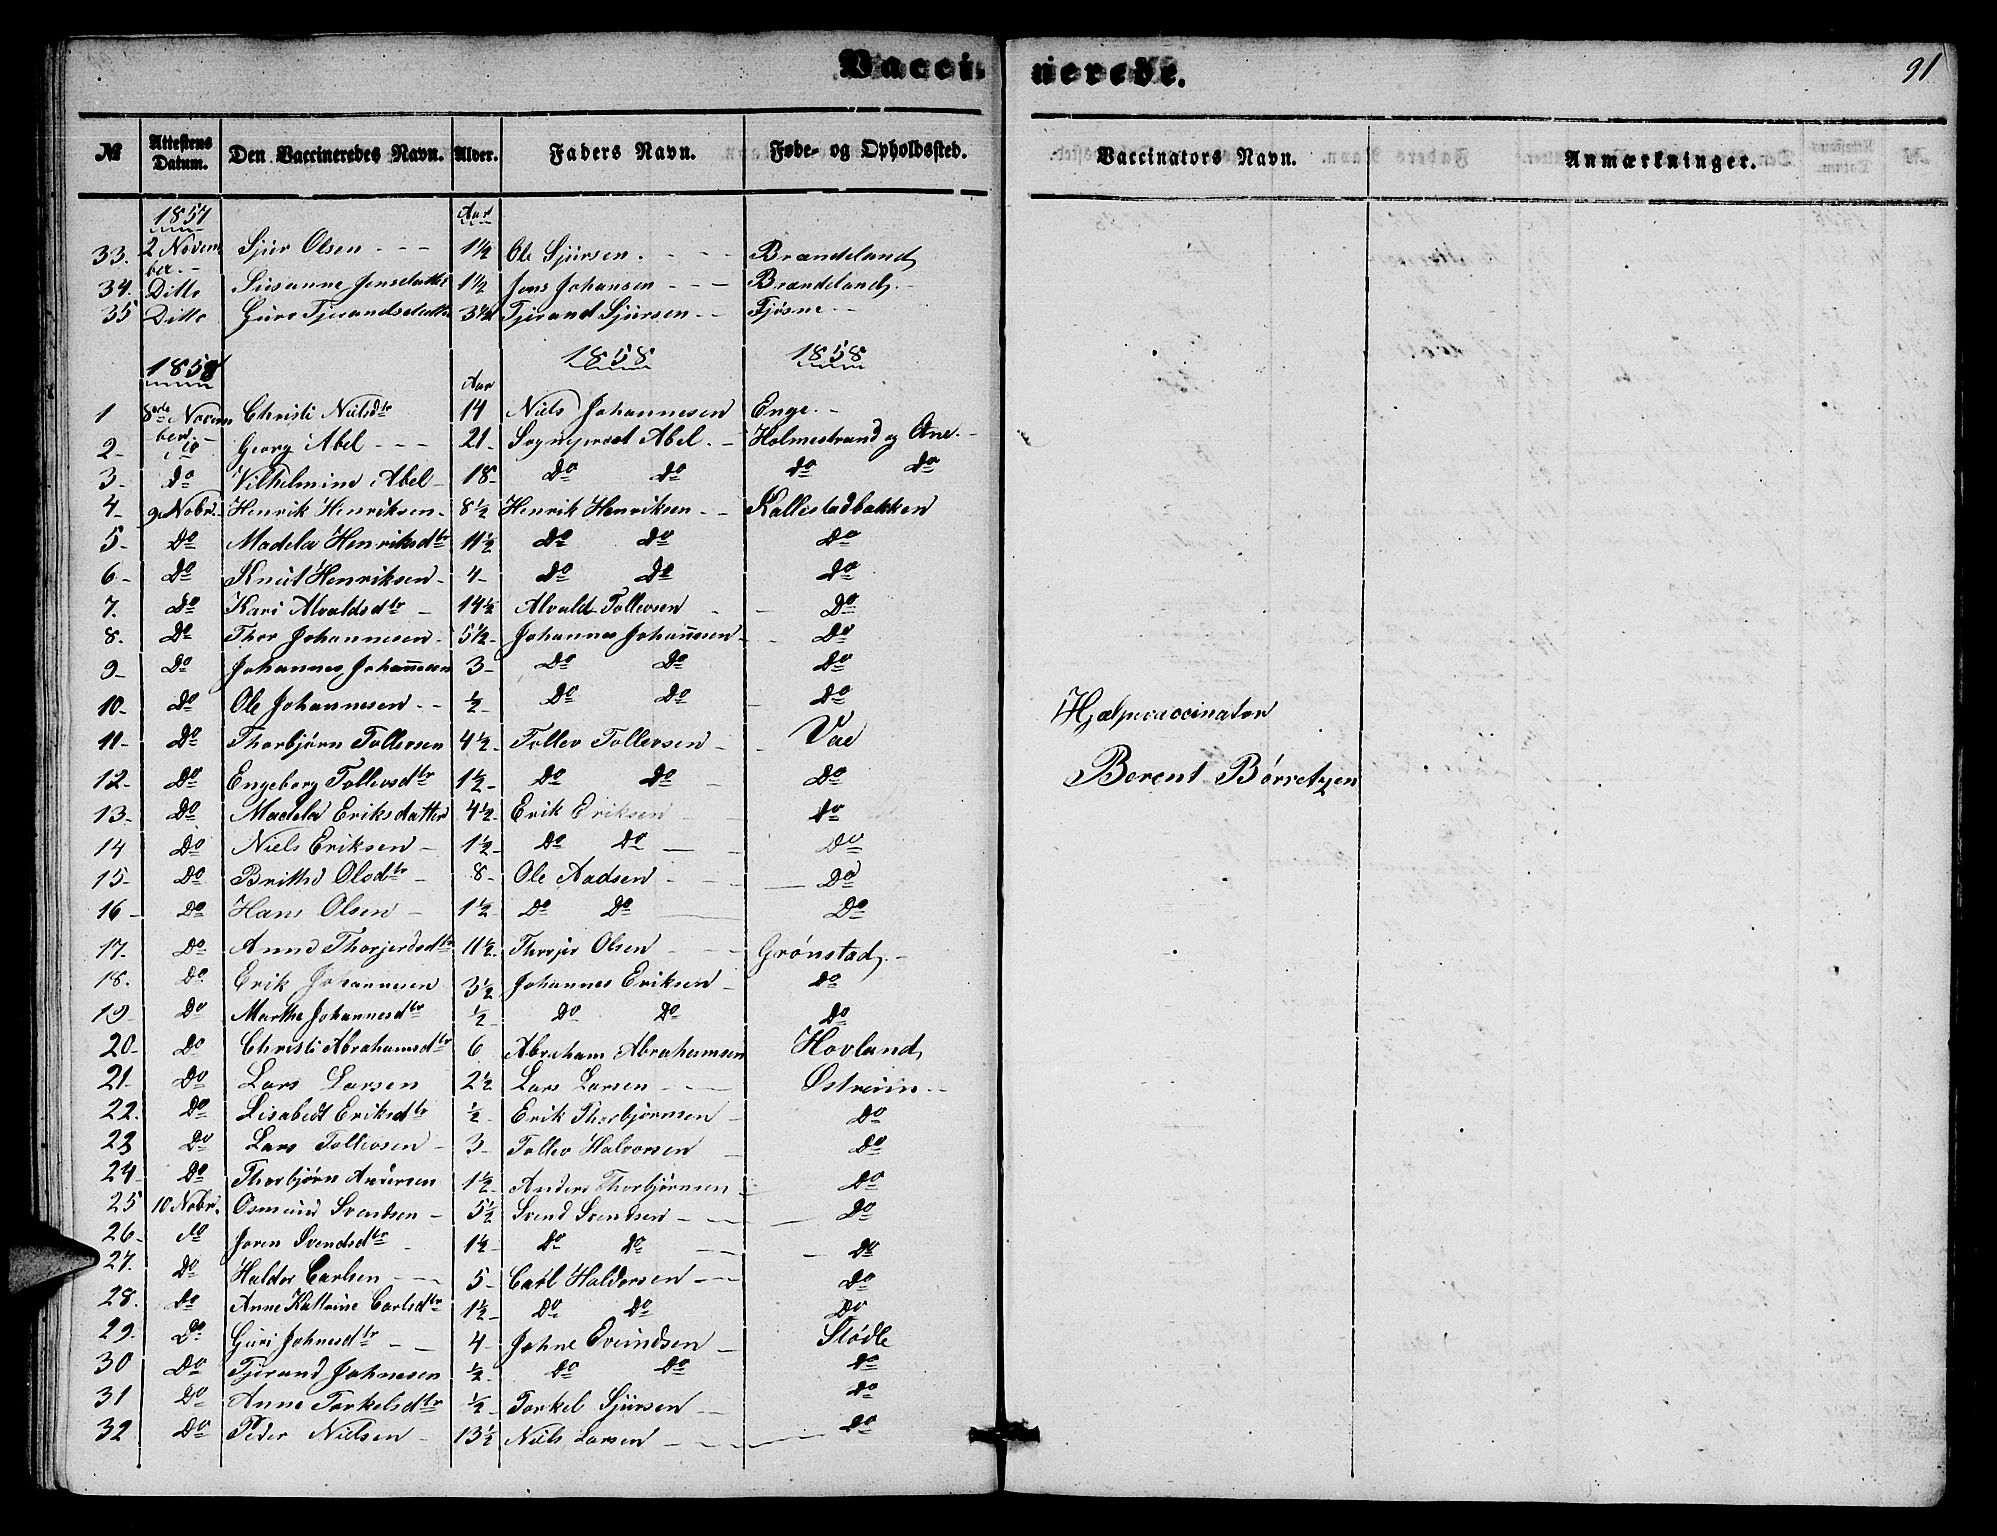 Vacci- nerede. 91
№ Attestens Datum. Den Vaccineredes Navn. Alder. Faders Navn. Føde- og Opholdssted. Vaccinators Navn. Anmærkninger.
1857 Aar
33. 2 Novem ber. - Sjur Olsen - - - 1½ Ole Sjursen. - - - - Brandeland
34. Ditto Susanne Jensdatter 1½ Jens Johansen - - - Brandeland -
35 Ditto Guro Tjerandsdatter 3¼ Tjerand Sjursen - - Fjøsne - -
1858 1858 1858
Aar
1 8de Novem ber. - Christi Nielsdtr 14 Niels Johannesen Enge -
2- do Georg Abel - - - 21- Sogneprest Abel. - Holmestrand og Ane. -
3- do Vilhelmine Abel - 18- Do Do do do
4- 9 Nobr. Henrik Henriksen - 8½ Henrik Henriksen - - Kallestadbakken
5- Do Madela Henriksdtr 11½ Do Do Do
6- Do Knut Henriksen - 4- Do Do Do
7. Do Kari Alvaldsdtr - 14½ Alvald Tollevsen - Do
8. Do Thor Johannesen - 5½- Johannes Johannesen - - Do
9- Do Johannes Johannesen 3- Do Do Do
10- Do Ole Johannesen - - ½- Do Do - Do
11- Do Thorbjørn Tollevsen 4½- Tollev Tollevsen - - Vae
12- Do Engeborg Tollevsdtr 1½- Do Do - Do
13- Do Madela Eriksdatter 4½- Erik Eriksen - Do
14 Do Niels Eriksen - 1½- Do Do - - Do
15- Do Britha Olsdtr - 8- Ole Aadsen - - - - Do
16- Do Hans Olsen - 1½ Do Do - Do
17- Do Anna Thorgersdtr 11½- Olsen - - - Grønstad -
18. Do Erik Johannesen 3½ Johannes Eriksen - Do
19- Do Marthe Johannesdtr ½- Do Do Do
20- Do Christi Abrahamsdtr 6 Abraham Abrahamsen Hovland
21- Do Lars Larsen 2½ Lars Larsen - - - -
22. Do Lisabedt Eriksdtr ½- Erik Thorbjørnsen - Do
23 Do Lars Tollevsen - 3- Tollev Halvorsen - Do
24- Do Thorbjørn Andersen 1½- Anders Thorbjørnsen - Do
25 10 Nobr. Osmund Svendsen - 5½ Svend Svendsen - - - - Do
26- do Joren Svendsdtr - 1½- Do Do - - - - Do
27. Do Haldor Carlsen - - - 5- Carl Haldorsen - - - Do
28. do Anne Kattrine Carlsdtr 1½- Do Do Do
29- Do Guri Johnesdtr - - 4- Johne Evindsen - Stødle
30 Do Tjerand Johnesen ½- Do Do Do
31 Do Anne Torkelsdtr ½- Torkel Sjursen - - Do
32 Do Peder Nielsen - 13½ Niels Larsen - - - - - - Do
Hjælpevaccinatør
Berent Børretzen